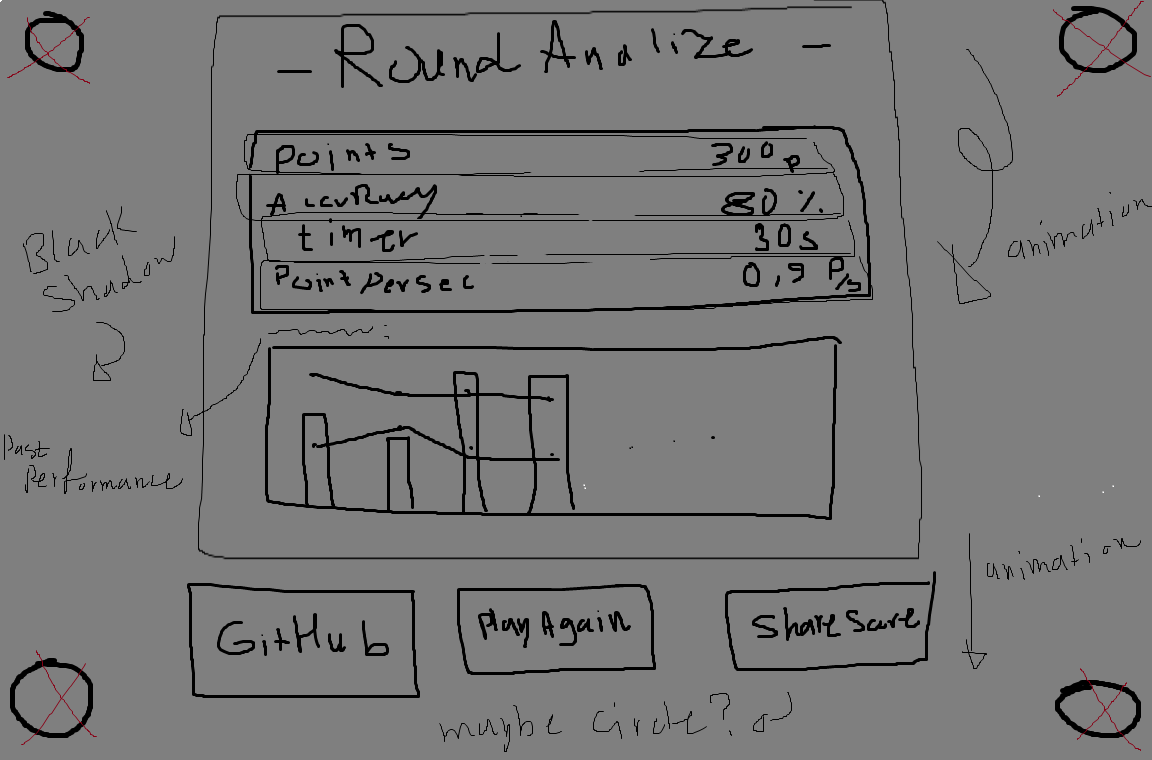 - Round Analize -
Points 300p
Accuracy 80 %.
timer 30s
Point per sec 0,9 P/s
Black
Shadow
animation
Past
Performance
animation
GitHub
Play Again
Share Save
maybe circle?